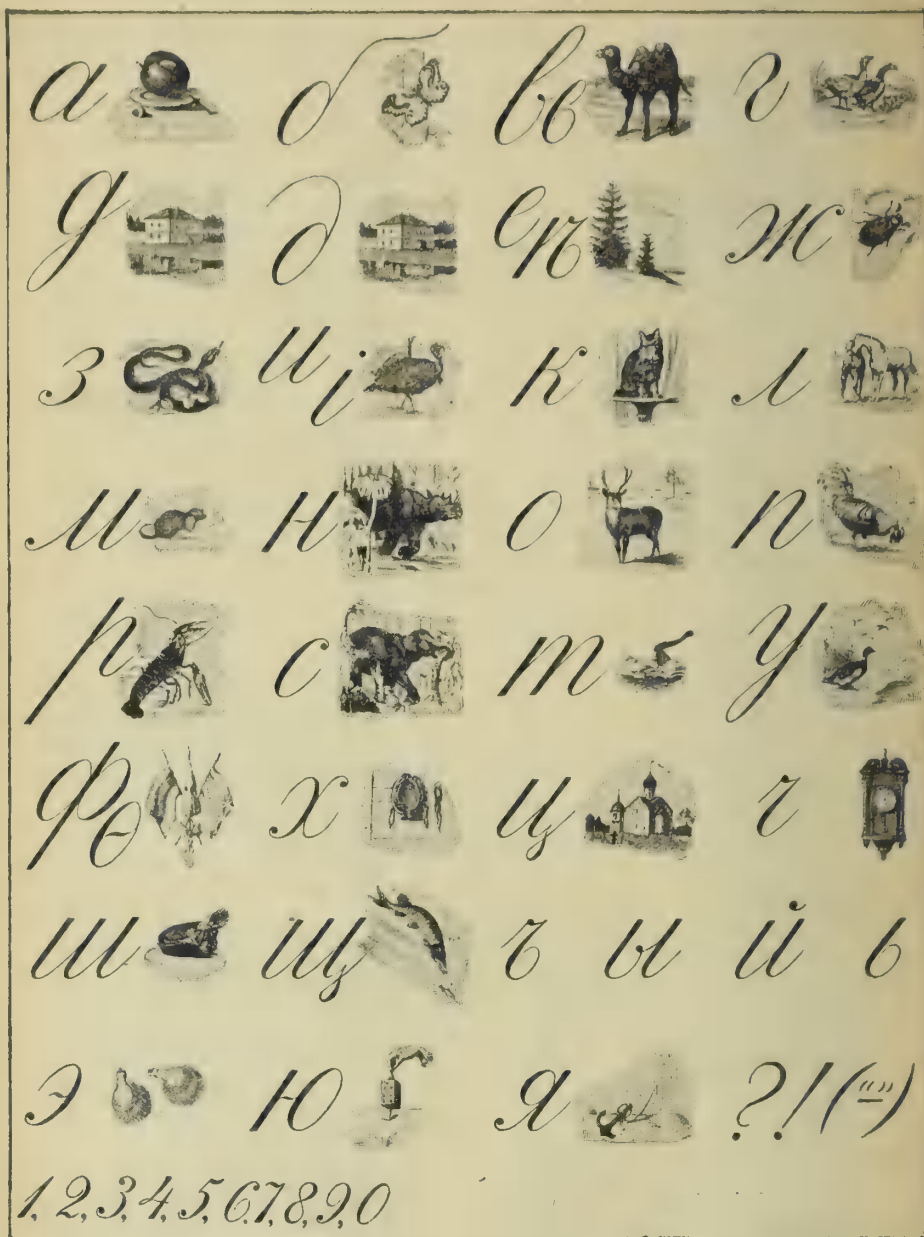 а б в в г
д д е ѣ ж
з и і к л
м н о п
р с т у
ф ѳ х ц ч
ш щ ъ ы й ь
э ю я ? ! („“)
1, 2, 3, 4, 5, 6, 7, 8, 9, 0